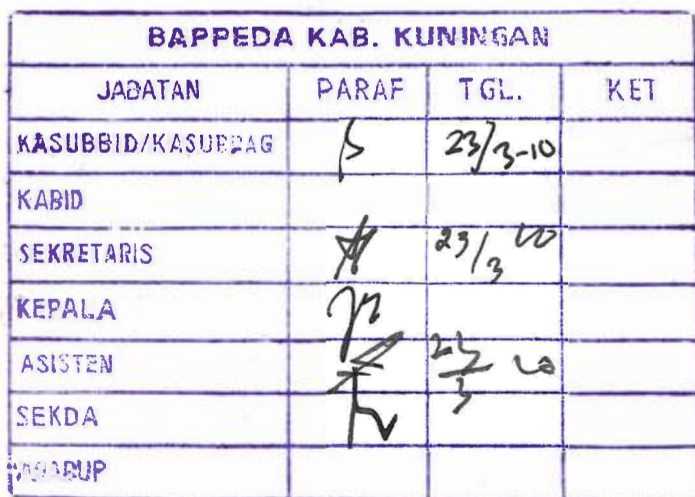 BAPPEDA KAB. KUNINGAN
JABATAN PARAF TGL. KET
KASUBBID/KASUBBAG 23/3-10
KABID
SEKRETARIS 23/3 10
KEPALA
ASISTEN
SEKDA
WABUP